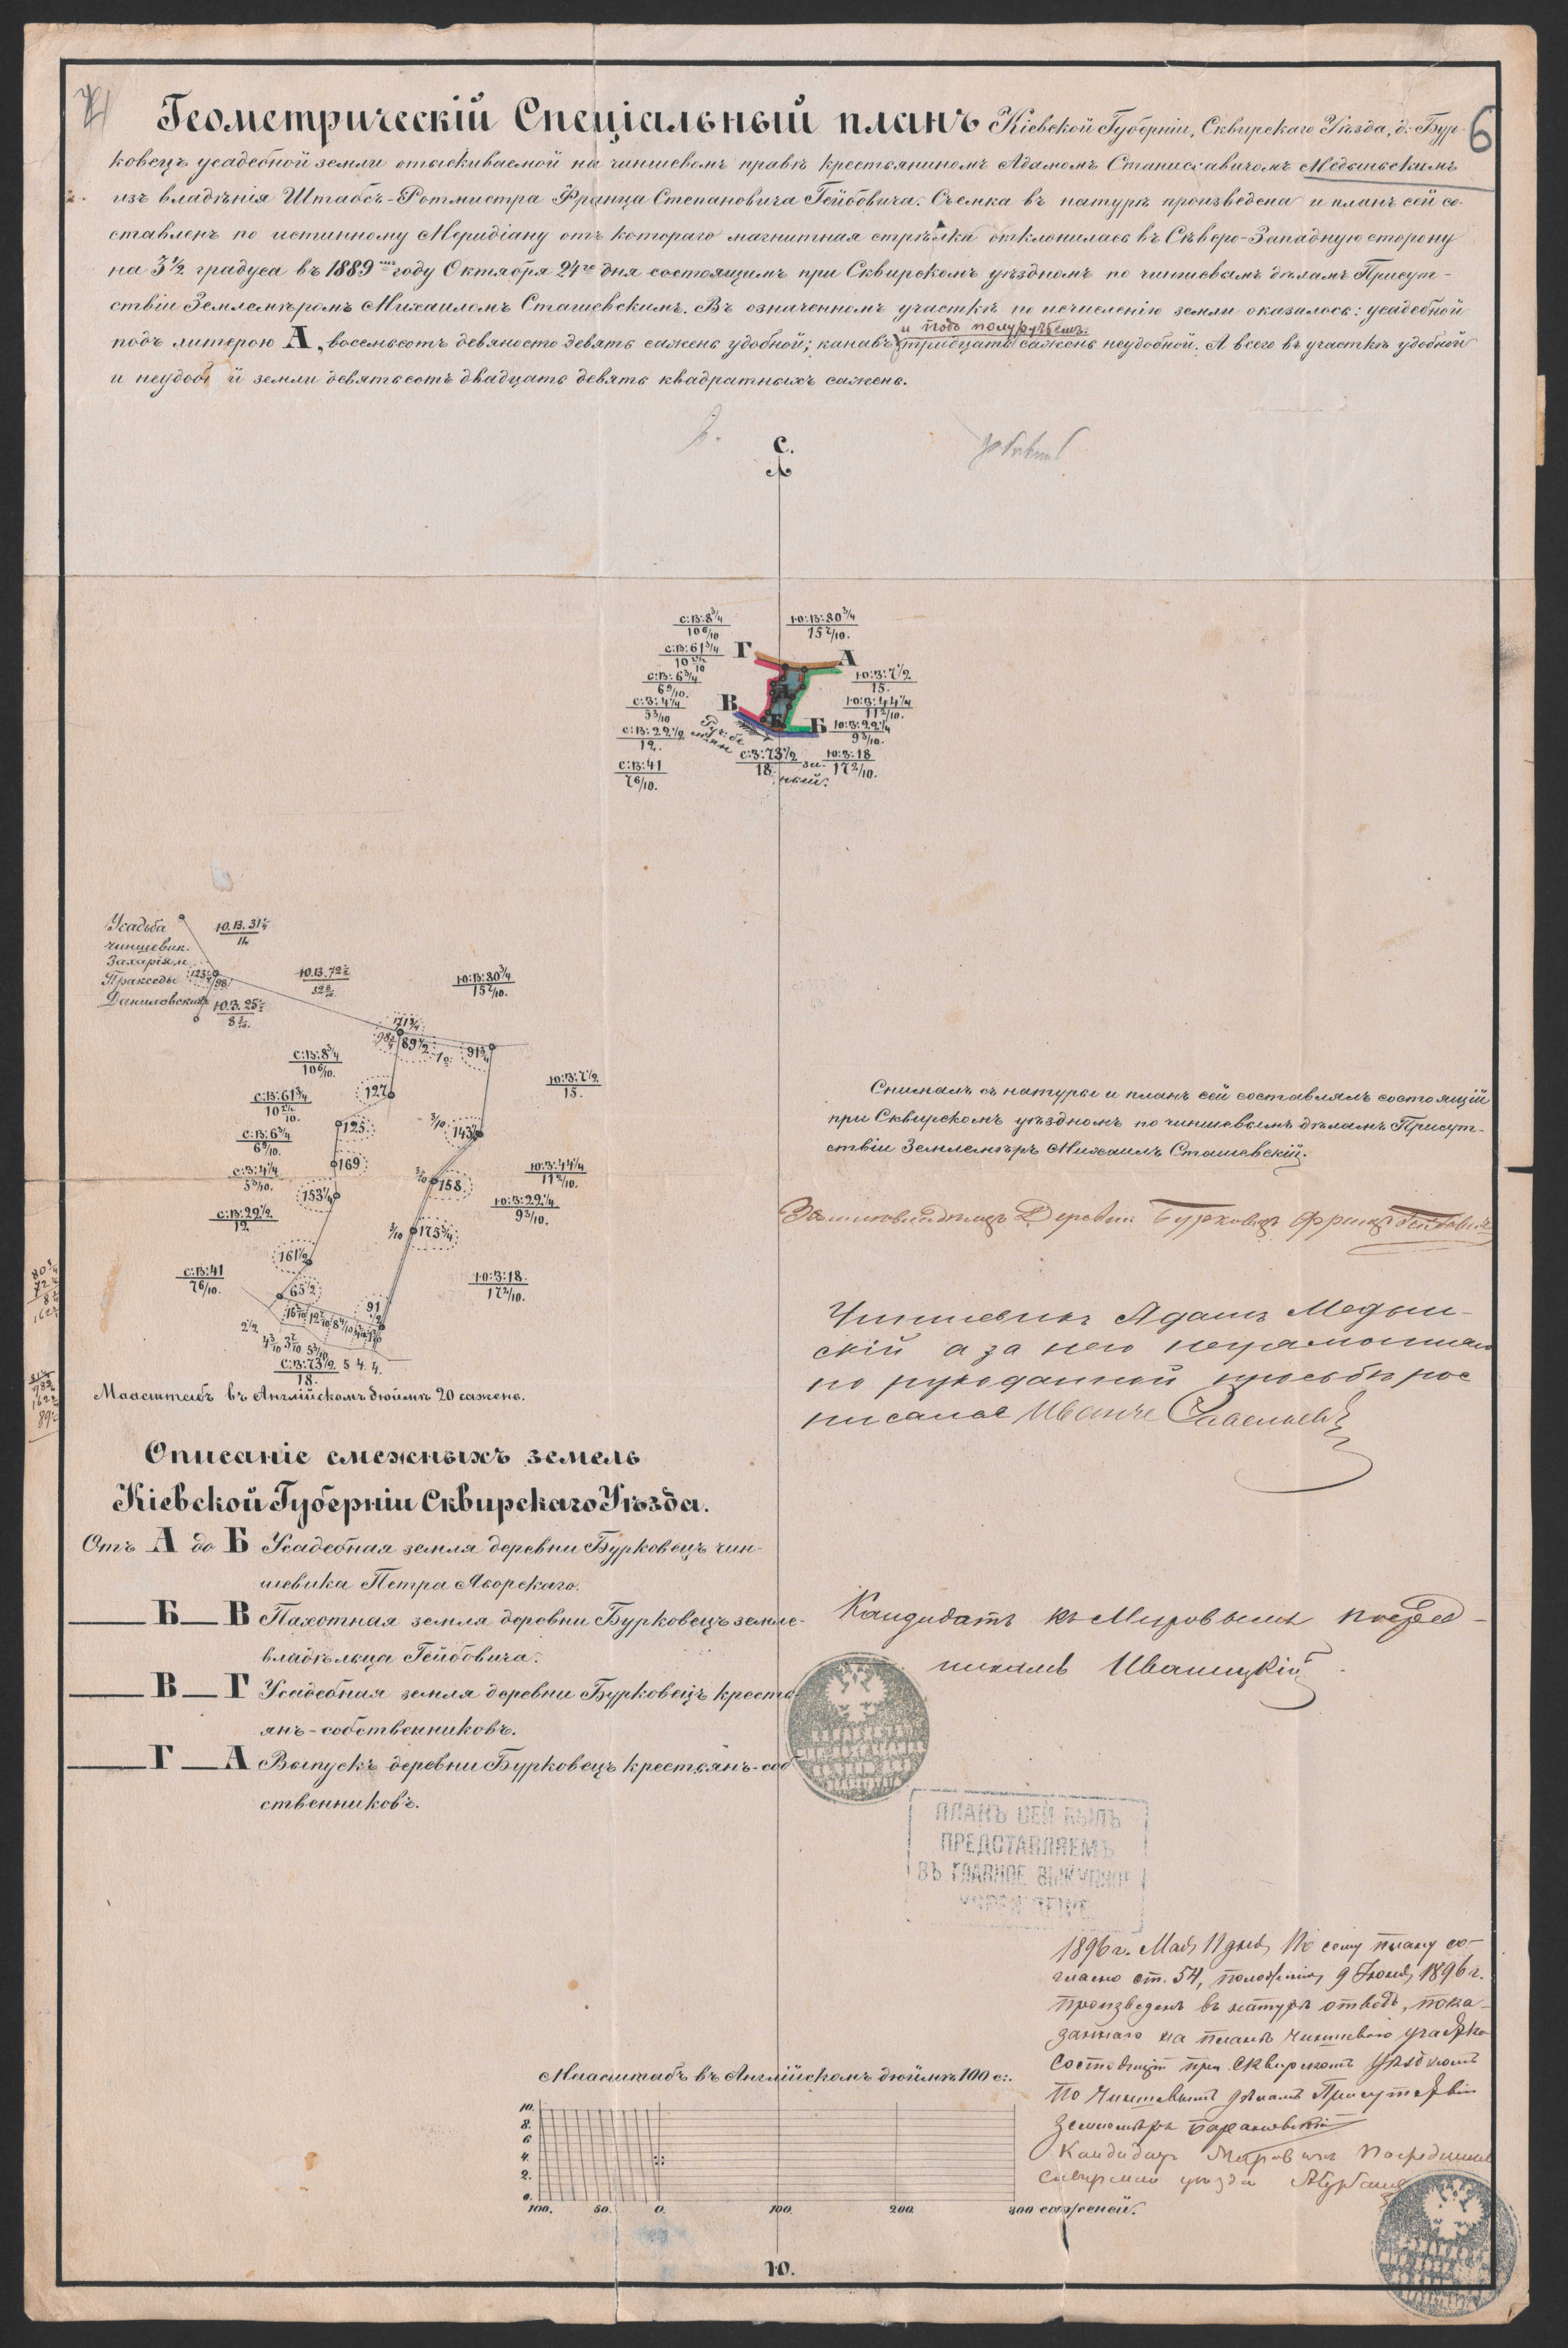 6
Геометрическій Спеціальный планъ Кіевской Губерніи, Сквирскаго Уѣзда, д. Бур-
ковецъ усадебной земли отыскиваемой на чиншевомъ правѣ крестьяниномъ Адамомъ Станиславичомъ Медынскимъ
изъ владѣнія Штабсъ-Ротмистра Франца Степановича Гейбовича. Съемка въ натурѣ произведена и планъ сей со-
ставленъ по истинному Меридіану отъ котораго магнитная стрѣлка отклонилась въ Сѣверо-Западную сторону
на 3½ градуса въ 1889мъ году Октября 24го дня состоящимъ при Сквирскомъ уѣздномъ по чиншевымъ дѣламъ Присут-
ствіи Землемѣромъ Михаиломъ Сташевскимъ. Въ означенномъ участкѣ по исчисленію земли оказалось: усадебной
и подъ полуручьемъ:
подъ литерою А, восемьсотъ девяносто девять сажень удобной; канавъ тридцать сажень неудобной. А всего въ участкѣ удобной
и неудобной земли девятьсотъ двадцать девять квадратныхъ сажень.
С.
С:В:8¾ 10 6/10
Ю:В:80¾ 15 2/10.
С:В:61¾ 10 2½/10
Г
А
С:В:6¾ 6 9/10.
Ю:З:7½ 15.
С:З:4¼ 5 3/10
В
А
Ю:З:44¼ 11 2/10.
С:В:22½ 12.
Б
Ю:З:22¼ 9 3/10.
С:В:41 7 6/10.
С:З:73½ 18.
Ю:З:18 17 2/10.
Усадьба
чиншевик.
Захарія и
Пракседы
Даниловскихъ
Ю.В.31¼
Ю.В.72½
Ю.З.25½
Ю:В:80¾ 15 2/10.
171¾
89½
91¾
С:В:8¾ 10 6/10.
127
Ю:З:7½ 15.
С:В:61¾ 10 2½/10.
125
3/10
143¼
С:В:6¾ 6 9/10.
169
С:З:4¼ 5 3/10.
153¼
158
Ю:З:44¼ 11 2/10.
Ю:З:22¼ 9 3/10.
С:В:29½ 12
175¾
161½
С:В:41 7 6/10.
65½
91½
Ю:З:18. 17 2/10.
С:З:73½ 18.
5 4. 4.
Маасштабъ въ Англійскомъ дюймѣ 20 сажень.
Описаніе смежныхъ земель
Кіевской Губерніи Сквирскаго Уѣзда.
Отъ А до Б Усадебная земля деревни Бурковецъ чин-
шевика Петра Яворскаго.
Б — В Пахотная земля деревни Бурковецъ земле-
владѣльца Гейбовича.
В — Г Усадебная земля деревни Бурковецъ кресть-
янъ-собственниковъ.
Г — А Выпускъ деревни Бурковецъ крестьянъ-соб
ственниковъ.
Снималъ съ натуры и планъ сей составлялъ состоящій
при Сквирскомъ уѣздномъ по чиншевымъ дѣламъ Присут-
ствіи Землемѣръ Михаилъ Сташевскій.
Землевладѣлецъ Деревни Бурковецъ Францъ Гейбовичъ
Чиншевикъ Адамъ Медын-
скій а за него неграмотнаго
по рукоданной прозьбѣ рос
писался Иванъ Савельевъ
Кандидатъ къ Мировымъ посред-
никамъ Ивашицкій
ПЛАНЪ СЕЙ БЫЛЪ
ПРЕДСТАВЛЯЕМЪ
ВЪ ГЛАВНОЕ ВЫКУПНОЕ
УЧРЕЖДЕНІЕ
1896 г. Мая 11 дня, По сему плану со-
гласно ст. 54, положенія 9 Іюня 1896 г.
произведенъ въ натурѣ отводъ, пока-
заннаго на планѣ чиншеваго участка
состоящимъ при Сквирскомъ Уѣздномъ
По Чиншевымъ дѣламъ Присутствіи
Землемѣръ Барановскій
Кандидатъ Мировыхъ Посредниковъ
Сквирскаго уѣзда
Маасштабъ въ Англійскомъ дюймѣ 100 с:.
10.
8.
6
4.
2.
0.
100. 50. 0. 100. 200. 300 саженей.
Ю.